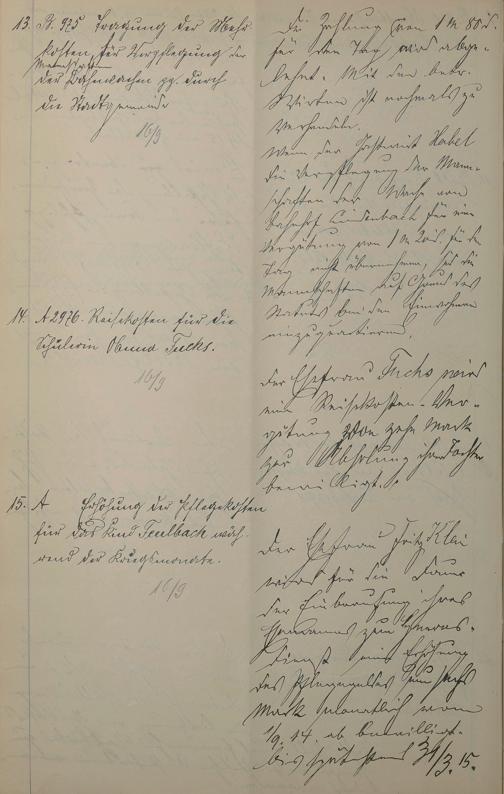 13. St. 925 Tragung der Mehr
kosten für Verpflegung der
Mannschaften
der Bahnwachen pp. durch
die Stadtgemeinde
16/9
Die Zahlung von 1 M 80 d.
für den Tag wird abge-
lehnt. Mit den betr.
Wirten ist nochmals zu
verhandeln.
Wenn der Gastwirt Habel
die Verpflegung der Mann-
schaften der Wache von
Bahnhof Lindenbach für eine
Vergütung von 1 M 20 d. für den
Tag nicht übernehme, sind die
Mannschaften auf Grund des
Statuts bei den Einwohnern
einzuquartieren.
14. A 2976. Reisekosten für die
Schülerin Fuchs.
16/9
Der Ehefrau Fuchs wird
eine Reisekosten-Ver-
gütung von zehn Mark
zur Abholung ihrer Tochter
bewilligt.
15. A Erhöhung der Pflegekosten
für das Kind Teulbach wäh-
rend der Kriegsmonate.
16/9
Der Ehefrau Fritz Klei
wird für die Dauer
der Einberufung ihres
Ehemannes zum Heeres-
dienst eine Erhöhung
des Pflegegeldes um sechs
Mark monatlich vom
1/9. 14. ab bewilligt.
bis spätestens 31/3. 15.